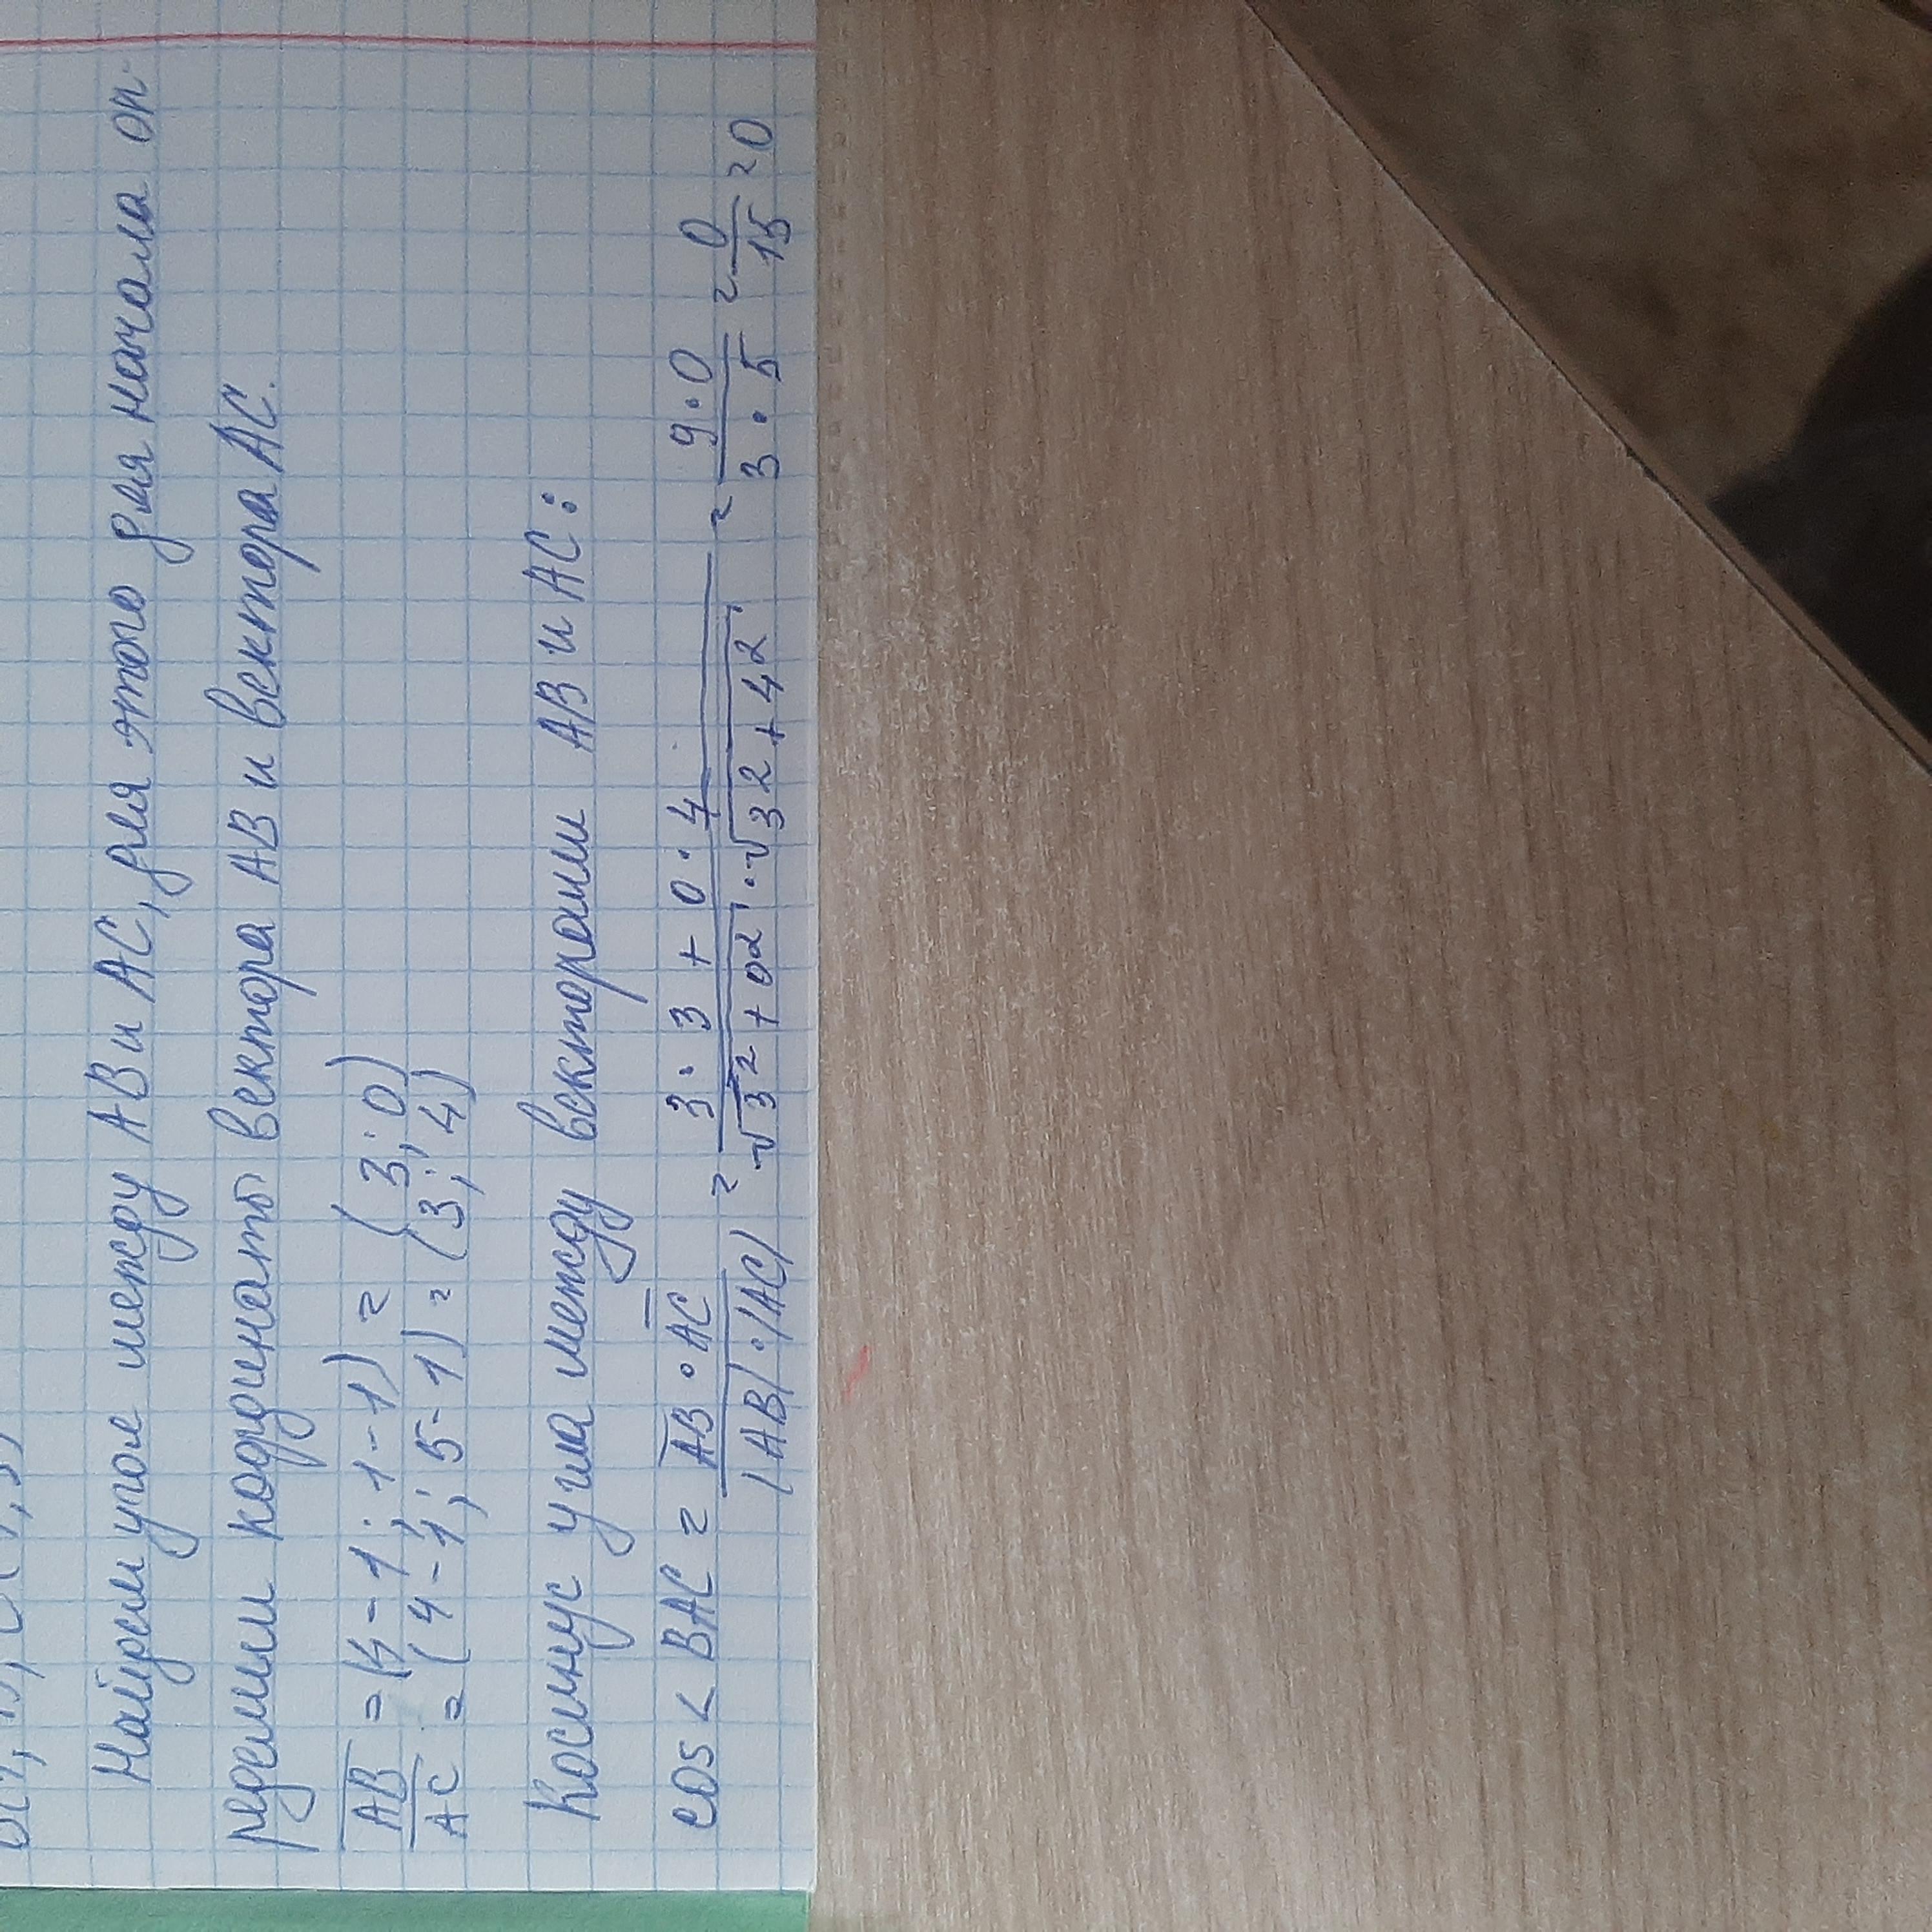 Найдем угол между AB и AC, для этого для начала оп-
ределим координаты вектора AB и вектора AC.
AB = (4 - 1; 1 - 1) = (3; 0)
AC = (4 - 1; 5 - 1) = (3; 4)
Косинус угла между векторами AB и AC:
cos < BAC = AB · AC / |AB| · |AC| = 3 · 3 + 0 · 4 / √3² + 0² · √3² + 4² = 9 · 0 / 3 · 5 = 0 / 15 = 0